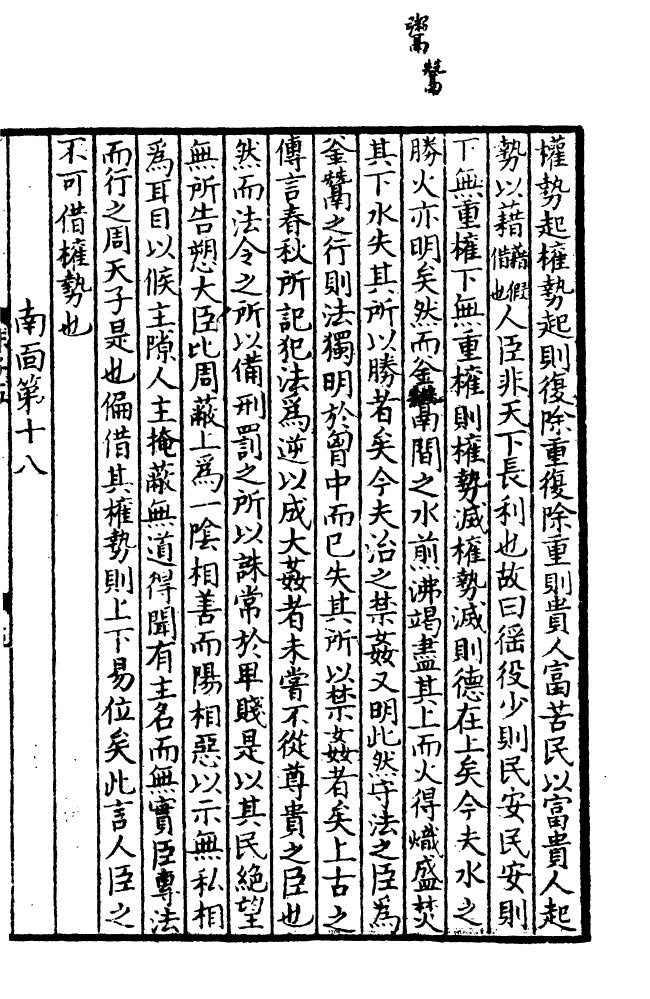 鬻 鬵
權勢起權勢起則復除重復除重則貴人富苦民以富貴人起
勢以藉藉假借也人臣非天下長利也故曰徭役少則民安民安則
下無重權下無重權則權勢滅權勢滅則德在上矣今夫水之
勝火亦明矣然而釜鬵間之水煎沸竭盡其上而火得熾盛焚
其下水失其所以勝者矣今夫治之禁姦又明此然守法之臣為
釜鬵之行則法獨明於胷中而已失其所以禁姦者矣上古之
傳言春秋所記犯法為逆以成大姦者未嘗不從尊貴之臣也
然而法令之所以備刑罰之所以誅常於卑賤是以其民絕望
無所告愬大臣比周蔽上為一陰相善而陽相惡以示無私相
為耳目以候主隙人主掩蔽無道得聞有主名而無實臣專法
而行之周天子是也偏借其權勢則上下易位矣此言人臣之
不可借權勢也
南面第十八